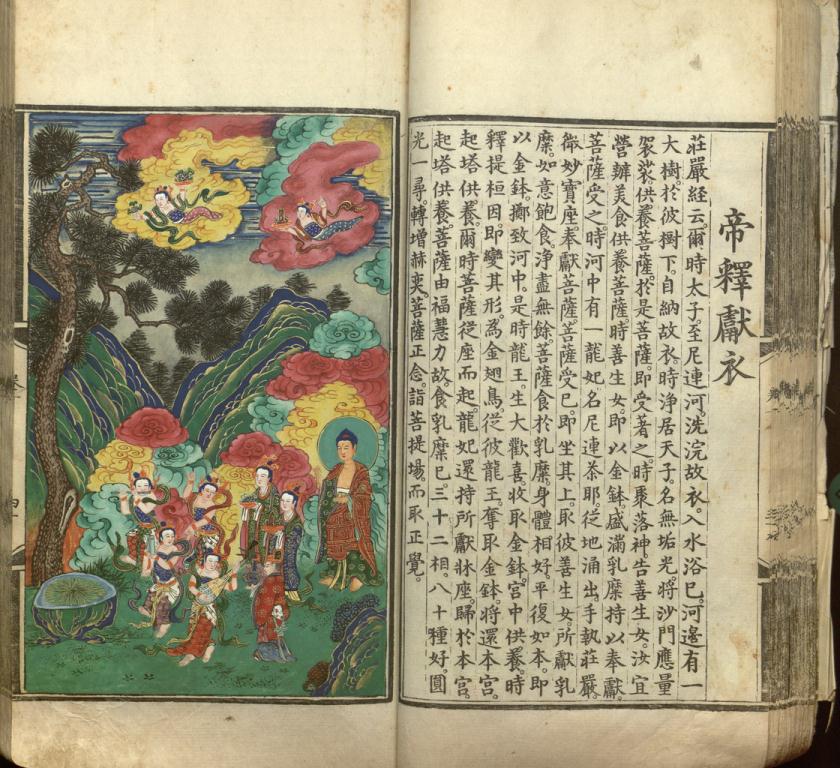 帝釋獻衣
莊嚴經云。爾時太子至尼連河。洗浣故衣。入水浴已。河邊有一
大樹。於彼樹下。自納故衣。時淨居天子。名無垢光。將沙門應量
袈裟。供養菩薩。於是菩薩。即受著之。時棗落神。告善生女。汝宜
營辦美食。供養菩薩。時善生女。即以金鉢。盛滿乳糜。持以奉獻。
菩薩受之。時河中有一龍妃。名尼連荼耶。從地涌出。手執莊嚴。
微妙寶座。奉獻菩薩。菩薩受已。即坐其上。取彼善生女。所獻乳
糜。如意飽食。淨盡無餘。菩薩食於乳糜。身體相好。平復如本。即
以金鉢。擲致河中。是時龍王。生大歡喜。收取金鉢。宮中供養。時
釋提桓因。即變其形。為金翅鳥。從彼龍王。奪取金鉢。將還本宮。
起塔供養。爾時菩薩。從座而起。龍妃還持所獻牀座。歸於本宮。
起塔供養。菩薩由福慧力故。食乳糜已。三十二相。八十種好。圓
光一尋。轉增赫奕。菩薩正念。詣菩提場。而取正覺。